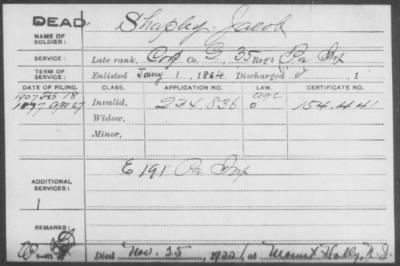 DEAD.
NAME OF SOLDIER: Shapley, Jacob
SERVICE: Late rank, Corp Co. G, 35 Reg't Pa Inf
TERM OF SERVICE: Enlisted Jany 1, 1864 Discharged , 1
DATE OF FILING. CLASS. APPLICATION NO. LAW. CERTIFICATE NO.
1907 Feb 18
1877 Apr 27 Invalid, 234.836 154.441
Widow,
Minor,
ADDITIONAL SERVICES: E 191 Pa Inf
1
REMARKS:
Died Nov. 25, 1922, at Mount Holly, N.J.